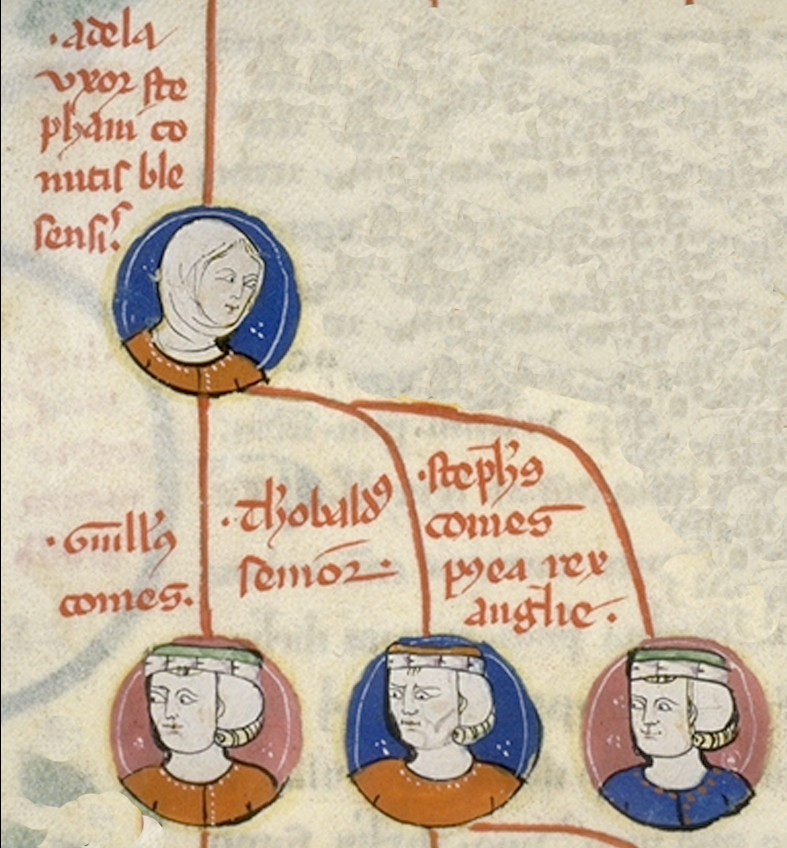 ·adela
vxor ste
phani co
mitis ble
sensis.
·Guillꝰ
comes.
·thobaldꝰ
senior·
·stephꝰ
comes
pꝰea rex
anglie·